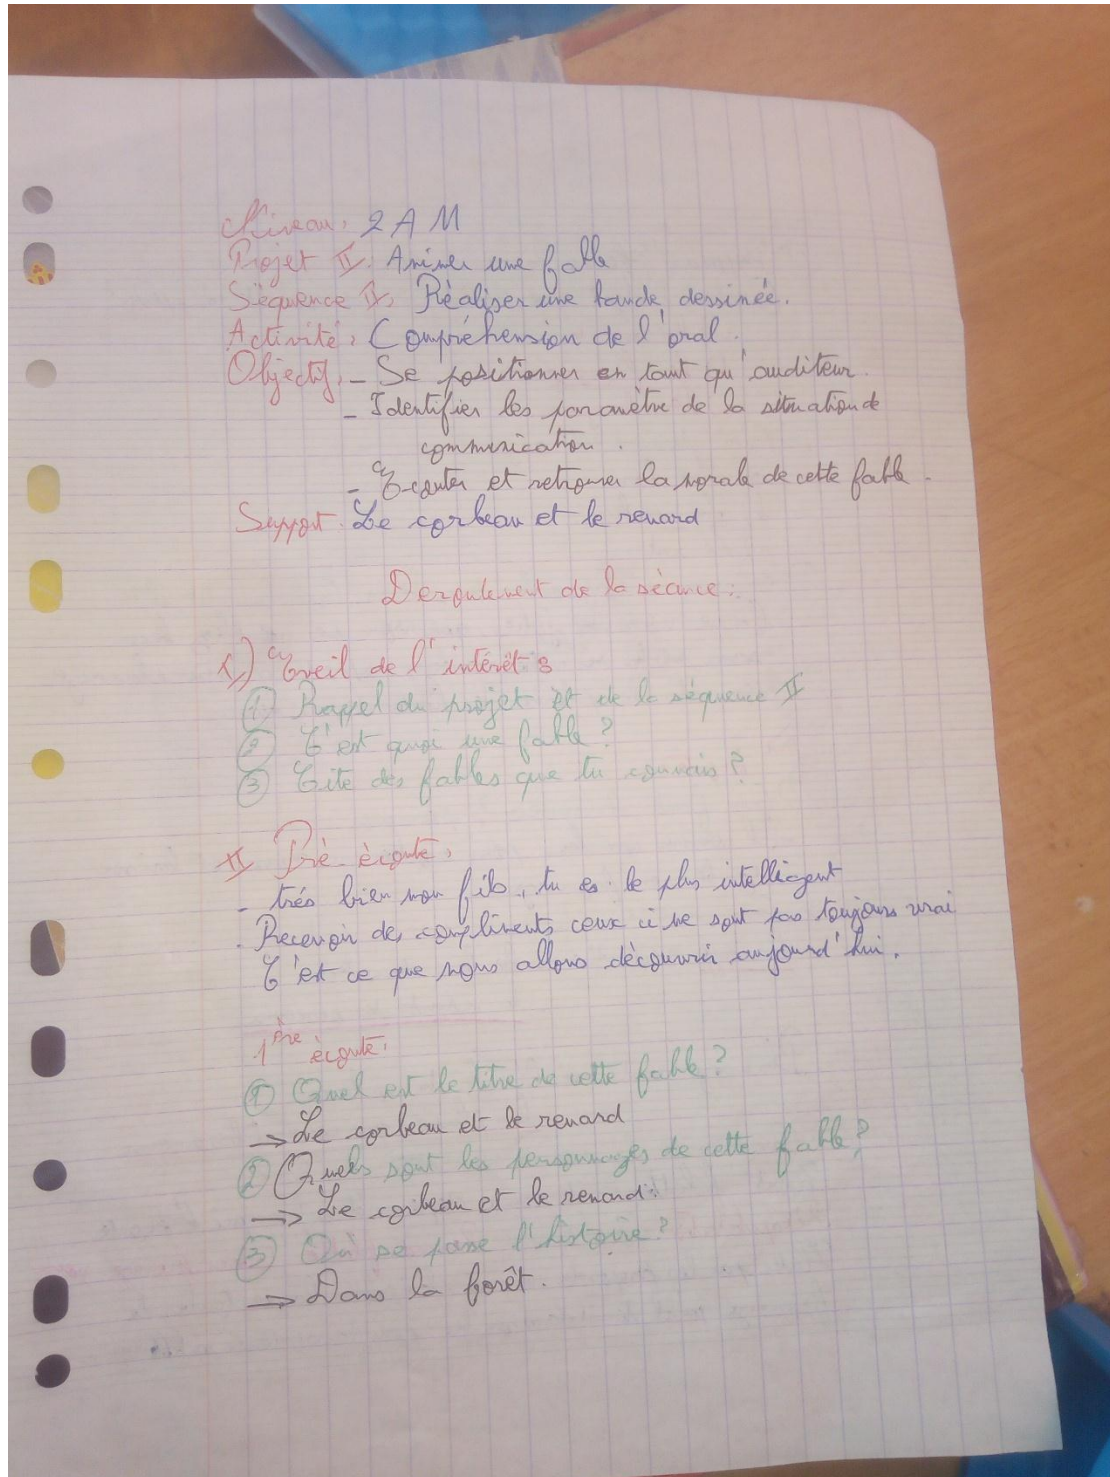 Niveau: 2 AM
Projet II: Animer une fable
Séquence II: Réaliser une bande dessinée.
Activité: Compréhension de l'oral.
Objectif: - Se positionner en tant qu'auditeur.
- Identifier les paramètre de la situation de
communication.
- Ecouter et retrouver la morale de cette fable.
Support: Le corbeau et le renard
Deroulement de la séance:
I) Eveil de l'intérêt:
① Rappel du projet et de la séquence II
② C'est quoi une fable?
③ Cite des fables que tu connais?
II Pré-écoute:
- trés bien mon fils, tu es le plus intelligent
- Recevoir des compliments ceux ci ne sont pas toujours vrai
C'est ce que nous allons découvrir aujourd'hui.
1ère écoute:
① Quel est le titre de cette fable?
→ Le corbeau et le renard
② Quels sont les personnages de cette fable?
→ Le corbeau et le renard.
③ Où se passe l'histoire?
→ Dans la forêt.